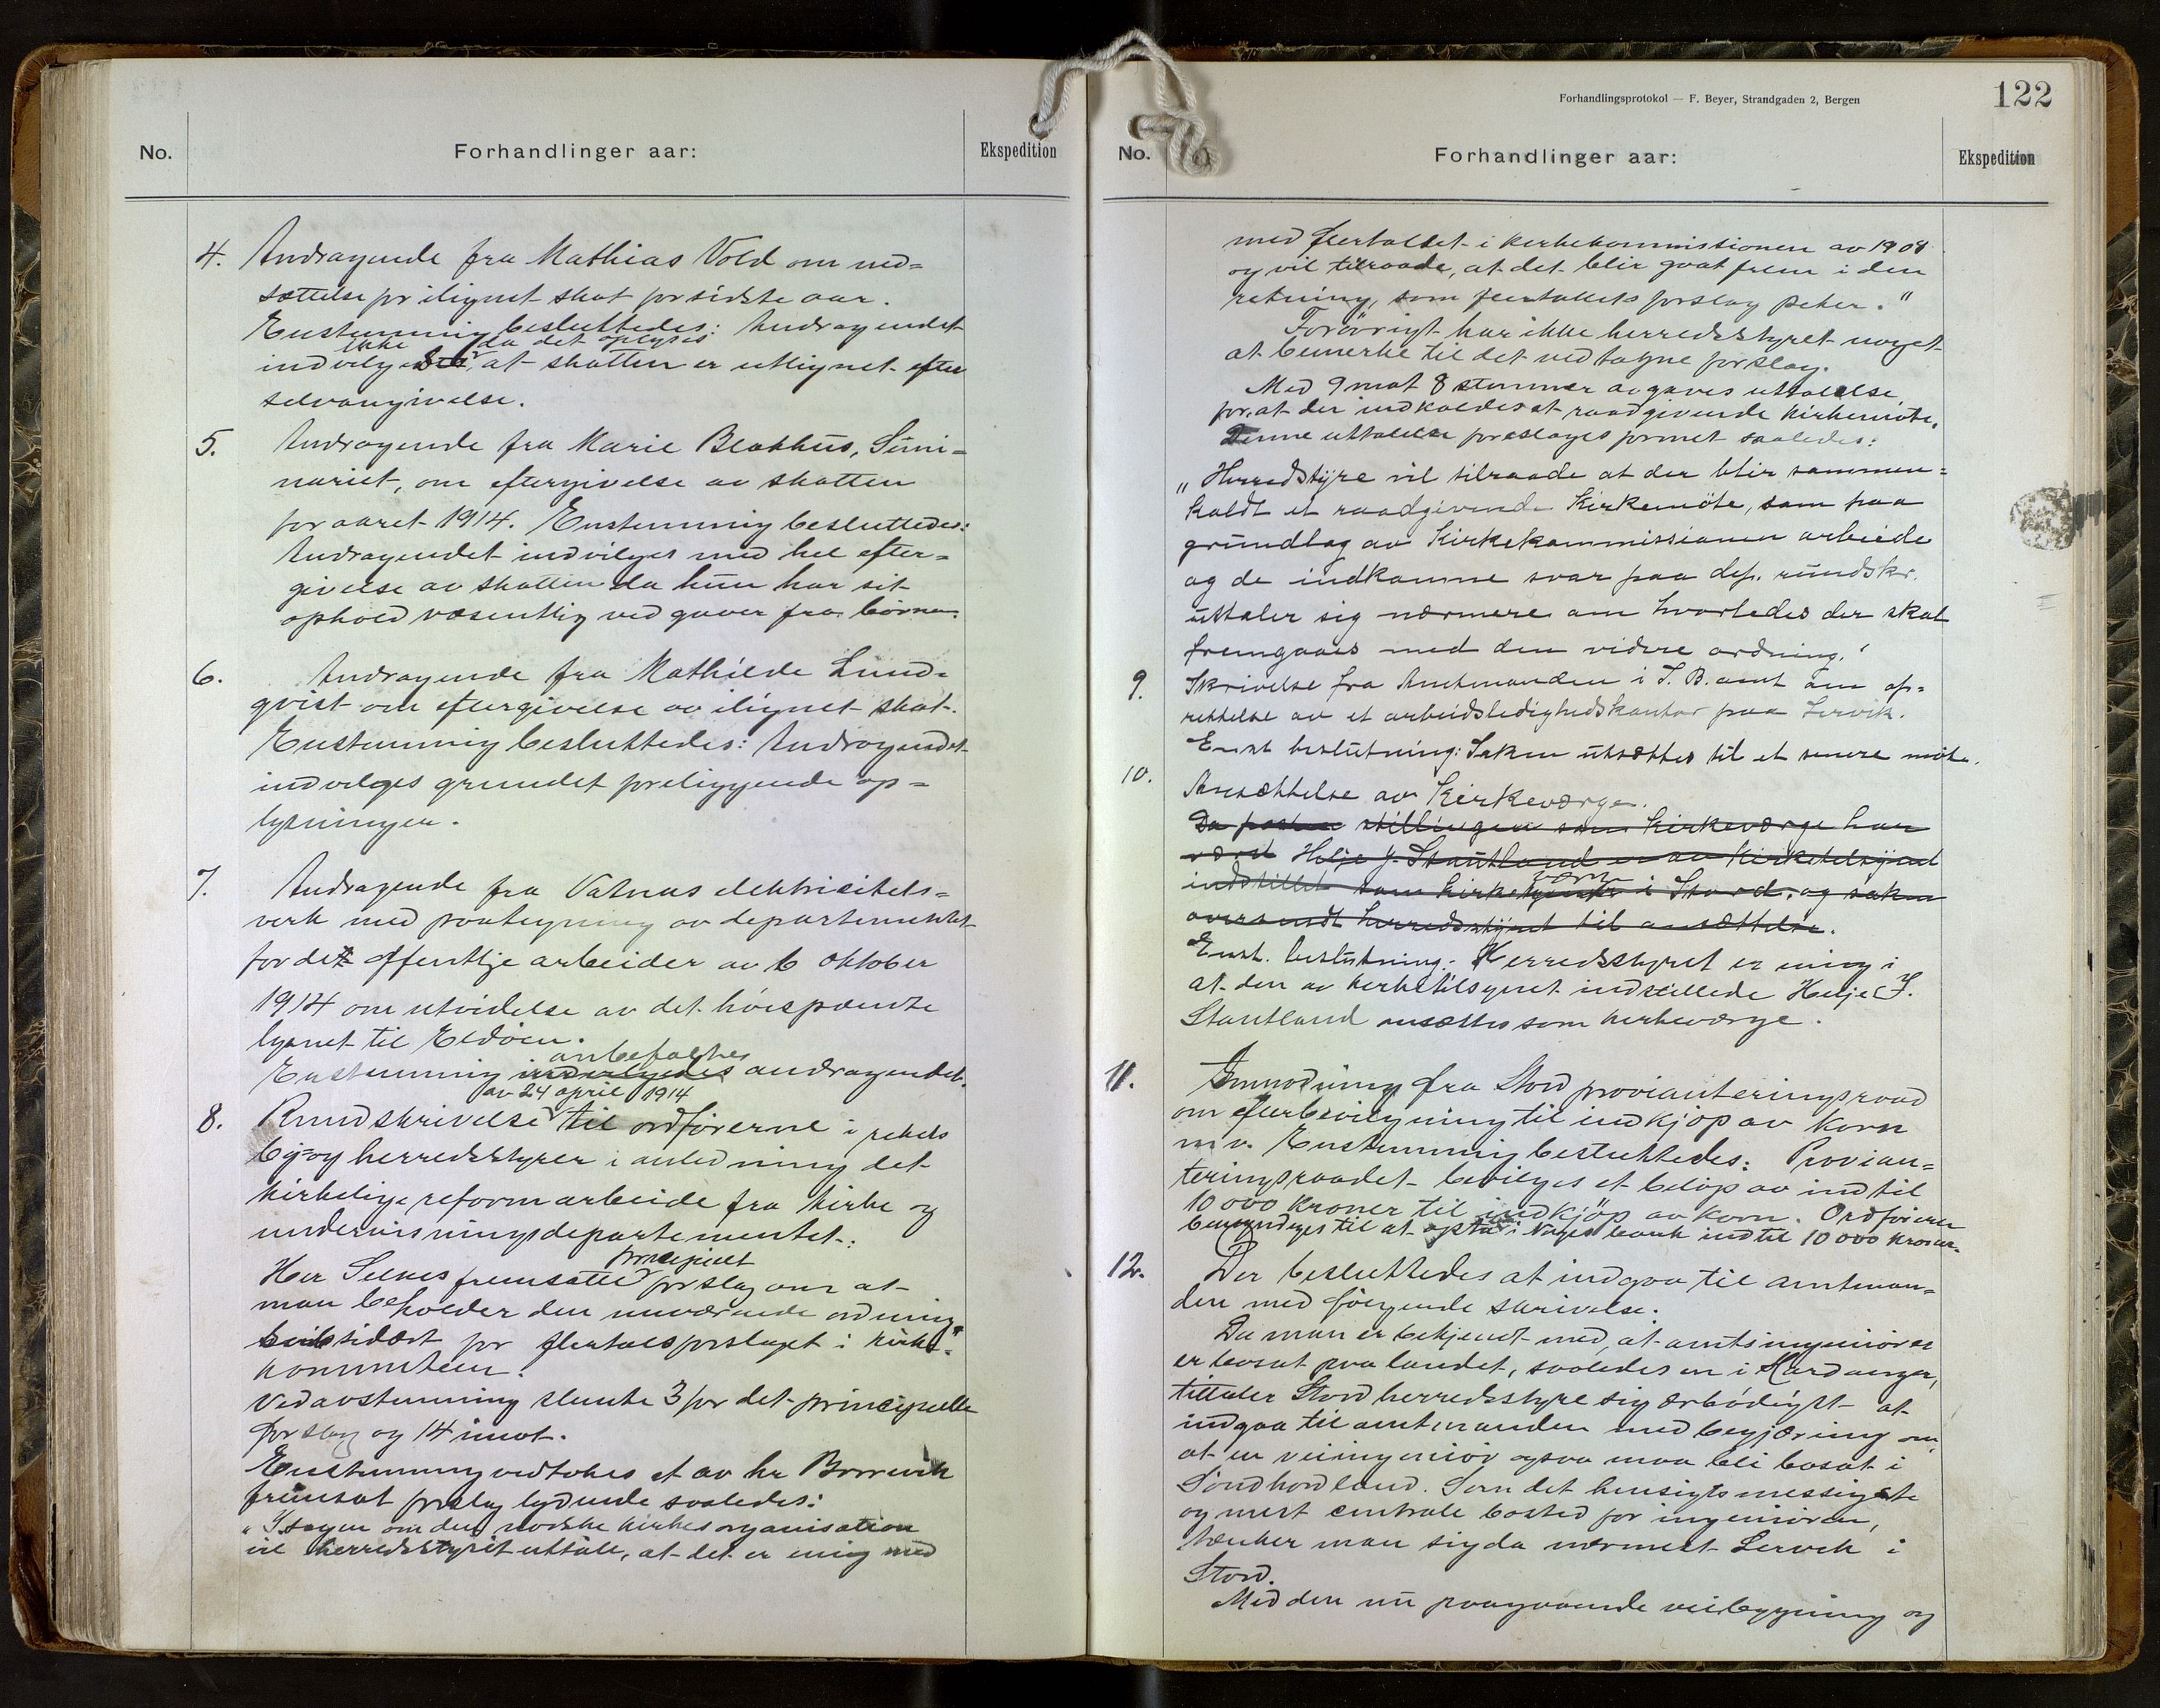 No.
Forhandlinger aar:
Ekspedition
4. Andragende fra Mathias Vold om ned=
sættelse for ilignet skat for sidste aar.
Enstemmig besluttedes: Andragendet
ikke da det oplyses
indvilges at skatten er utlignet efter
selvangivelse.
5. Andragende fra Marie Blokhus, Simi=
nariet, om eftergivelse av skatten
for aaret 1914. Enstemmig besluttedes:
Andragendet indvilges med hel efter=
givelse av skatten da hun har sit
ophold væsentlig ved gaver fra børnene.
6. Andragende fra Mathilde Lund=
qvist om eftergivelse av ilignet skat.
Enstemmig besluttedes: Andragendet
indvilges grundet foreliggende op=
lysninger.
7. Andragende fra Vatnas elektricitets=
verk med paategning av departementet
for de offentlige arbeider av 6 oktober
1914 om utvidelse av det høispændte
lysnet til Eldøen.
anbefaltes
Enstemmig indvilgedes andragendet.
av 24 april 1914
8. Rundskrivelse til ordførerne i rikets
by= og herredsstyrer i anledning det
kirkelige reformarbeide fra kirke og
undervisningsdepartementet.:
principielt
Herr Selnes fremsatte forslag om at
man beholder den nuværende ordning
subsidært for flertalsforslaget i kirke=
komiteen.
Ved avstemning stemte 3 for det principielle
forslag og 14 imot.
Enstemmig vedtokes et av hr Borrevik
fremsat forslag lydende saaledes:
"I sagen om den norske kirkes organisation
vil herredsstyret uttale, at det er enig med
Forhandlingsprotokol — F. Beyer, Strandgaden 2, Bergen
122
No.
Forhandlinger aar:
Ekspedition
med flertallet i kirkekommissionen av 1908
og vil tilraade, at det blir gaat frem i den
retning, som flertallets forslag peker."
Forøvrigt har ikke herredsstyret noget
at bemerke til det vedtagne forslag.
Med 9 mot 8 stemmer avgaves uttalelse
for, at der indkaldes et raadgivende kirkemøte.
Denne uttalelse foreslages formet saaledes:
"Herredstyre vil tilraade at der blir sammen=
kaldt et raadgivende Kirkemöte, som paa
grundlag av Kirkekommissionen arbeide
og de indkomne svar paa dep. rundskr.
uttaler sig nærmere om hvorledes der skal
fremgaaes med den videre ordning."
9. Skrivelse fra Amtmanden i S. B. amt om op=
rettelse av et arbeidsledighedskontor paa Lervik.
Enst beslutning: Saken utsættes til et senere möte.
10. Ansættelse av Kirkeværge.
Da posten stillingen som Kirkeværge har
været Helje J. Stautland er av Kirketilsynet
værge
indstillet som Kirketjener i Stord, og saken
oversendt herredsstyret til ansættelse.
Enst. beslutning: Herredsstyret er enig i
at den av kirketilsynet indstillede Helje J.
Stautland ansættes som kirkeværge.
11. Anmodning fra Stord provianteringsraad
om efterbevilgning til indkjøp av korn
m.v. Enstemmig besluttedes: Provian=
teringsraadet bevilges et beløp av indtil
10 000 kroner til indkjöp av korn. Ordføreren
bemyndiges til at opta i Norges bank indtil 10 000 kroner.
12. Der besluttedes at indgaa til amtman=
den med følgende skrivelse.
Da man er bekjendt med, at amtsingeniører
er bosat paa landet, saaledes en i Hardanger,
tillater Stord herredsstyre sig ærbødigst at
indgaa til amtmanden med begjæring om,
at en veiingeniør ogsaa maa bli bosat i
Søndhordland. Som det hensigtsmessigste
og mest centrale bosted for ingeniøren,
tænker man sig da nærmest Lervik i
Stord.
Med den nu paagaaende veibygning og